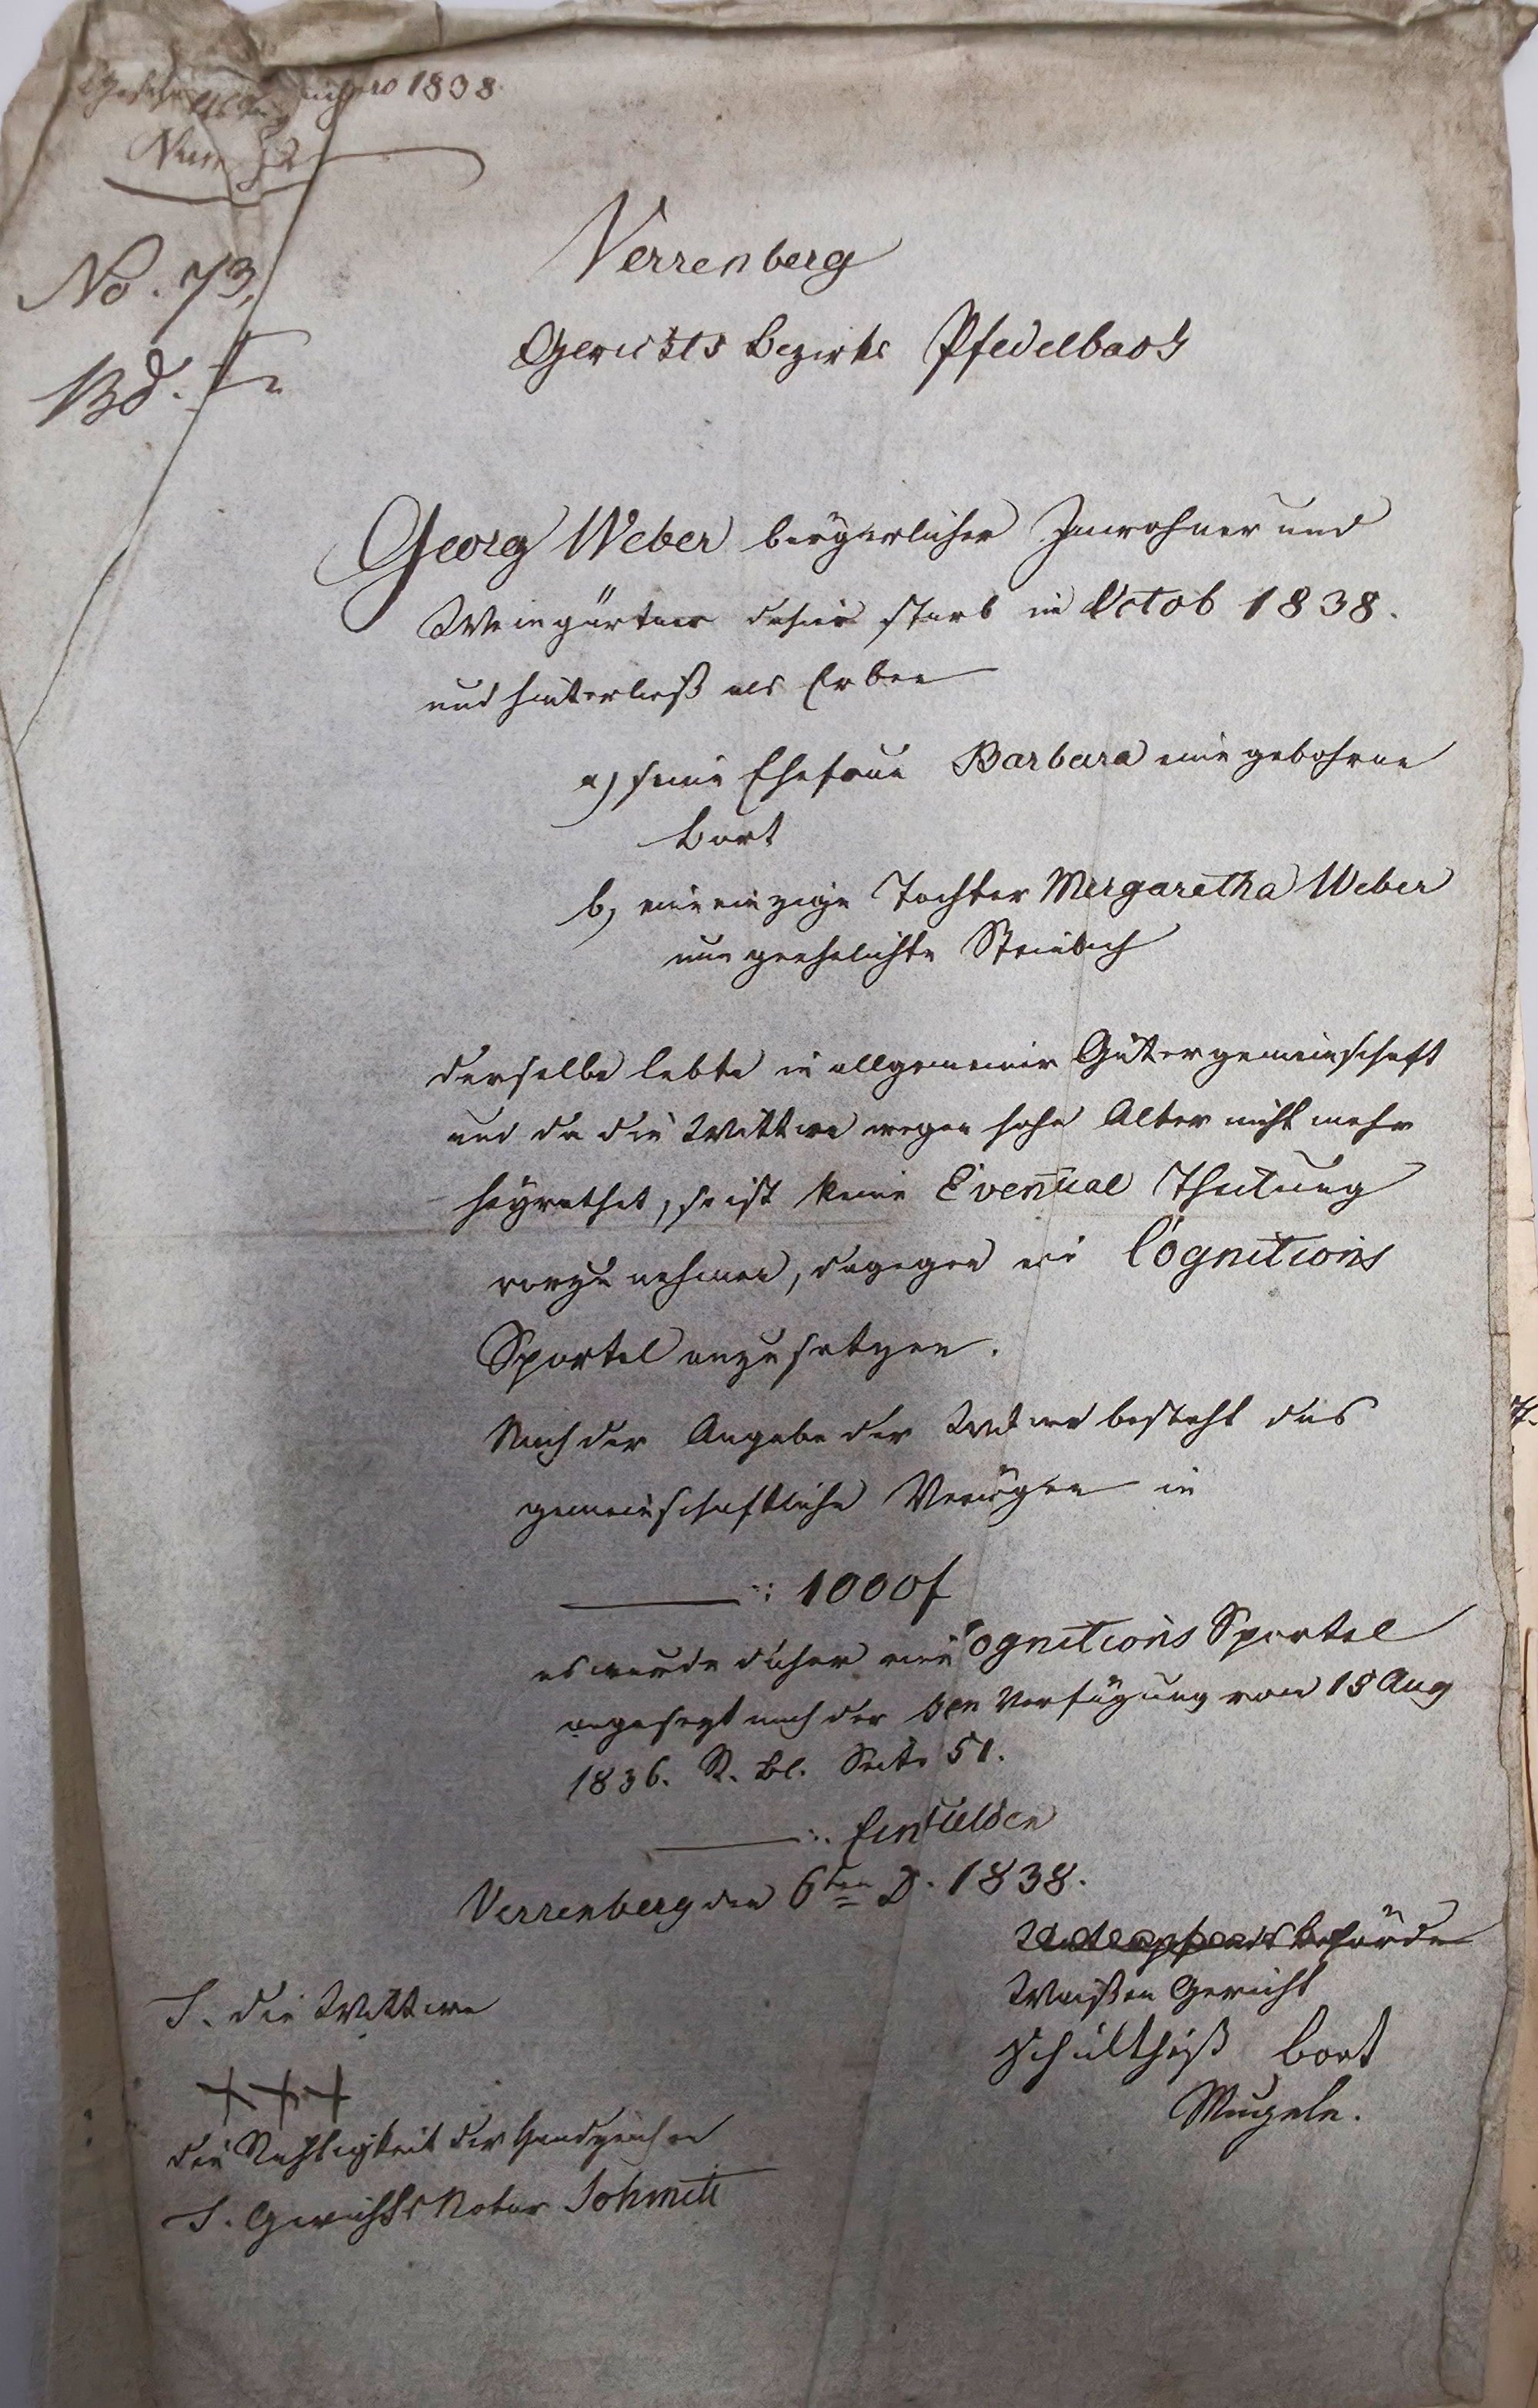 1838
Num 52
No. 73,
Bd. I
Verrenberg
Gerichts Bezirks Pfedelbach
Georg Weber bürgerlicher Inwohner und
Weingärtner dahier starb im Octob 1838.
und hinterließ als Erben
a) seine Ehefrau Barbara eine gebohrne
Bort
b, eine einzige Tochter Margaretha Weber
nun geehelichte Steinbach
derselbe lebte in allgemeiner Gütergemeinschaft
und da die Wittwe wegen hohe Alter nicht mehr
heyrathet, so ist keine Eventual Theilung
vorzu nehmen, dagegen eine Cognitions
Sportel anzusetzen.
Nach der Angabe der Witwe besteht das
gemeinschaftliche Vermögen in
1000 f
es wurde daher eine Cognitions Sportel
angesezt nach der Verfügung vom 18 Aug
1836. R. Bl. Seite 51.
Ein Gulden
Verrenberg den 6ten D. 1838.
Waißen Gericht
Schultheiß Bort
Mugele.
T. die Wittwe
+++
die Richtigkeit der Handzeichen
T. Gerichts Notar Schmitt